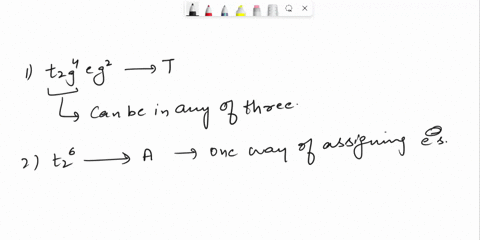 1) t₂g⁴ eg² → T
↳ Can be in any of three.
2) t₂⁶ → A → one way of assigning e⊖s.